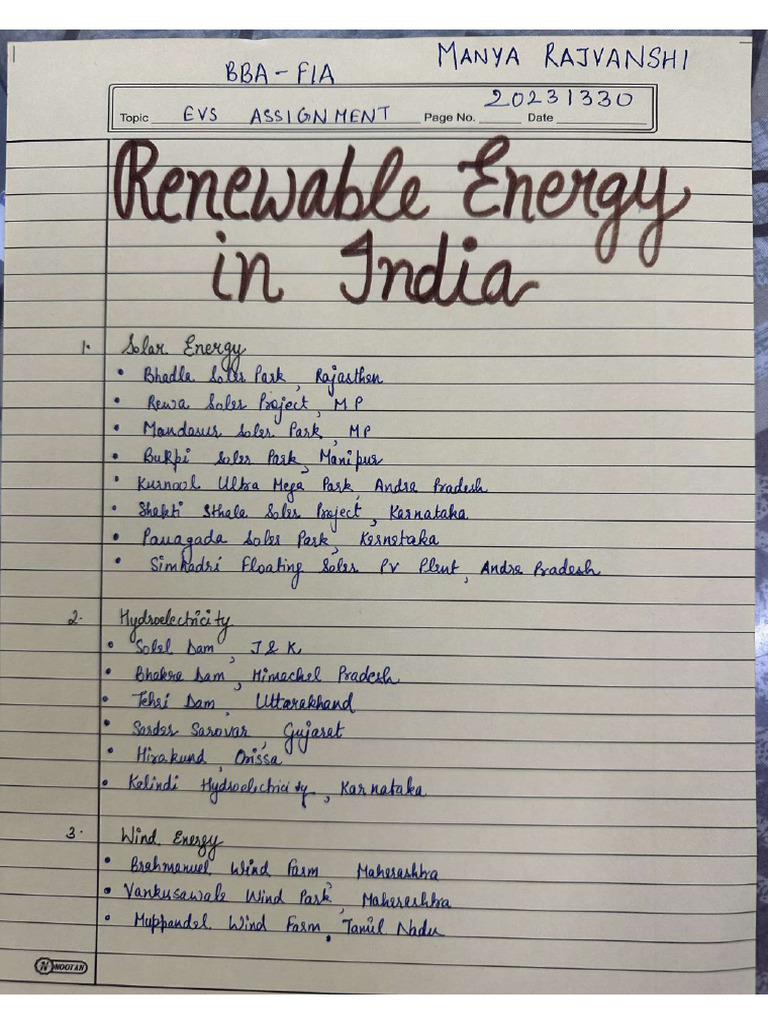 MANYA RAJVANSHI
BBA - FIA
20231330
Topic EVS ASSIGNMENT Page No. Date
Renewable Energy
in India
1. Solar Energy
• Bhadla Soler Park, Rajasthen
• Rewa Soler Project, MP
• Mandasur Soler Park, MP
• Bukpi Soler Park, Manipur
• Kurnool Ultra Mega Park, Andra Pradesh
• Shakti Sthala Soler Project, Karnataka
• Pavagada Soler Park, Kernetaka
• Simhadri Floating Soler PV Plent, Andra Pradesh
2. Hydroelectricity
• Solel Dam, J & K
• Bhakra Dam, Himachel Pradesh
• Tehri Dam, Uttarakhand
• Serder Sarovar, Gujaret
• Hirakund, Orissa
• Kelindi Hydroelectricity, Karnataka
3. Wind Energy
• Brahmanvel Wind Farm Maherashtra
• Vankusawale Wind Park, Maherashtra
• Muppandel Wind Farm. Tamil Nadu
N NOOTAN